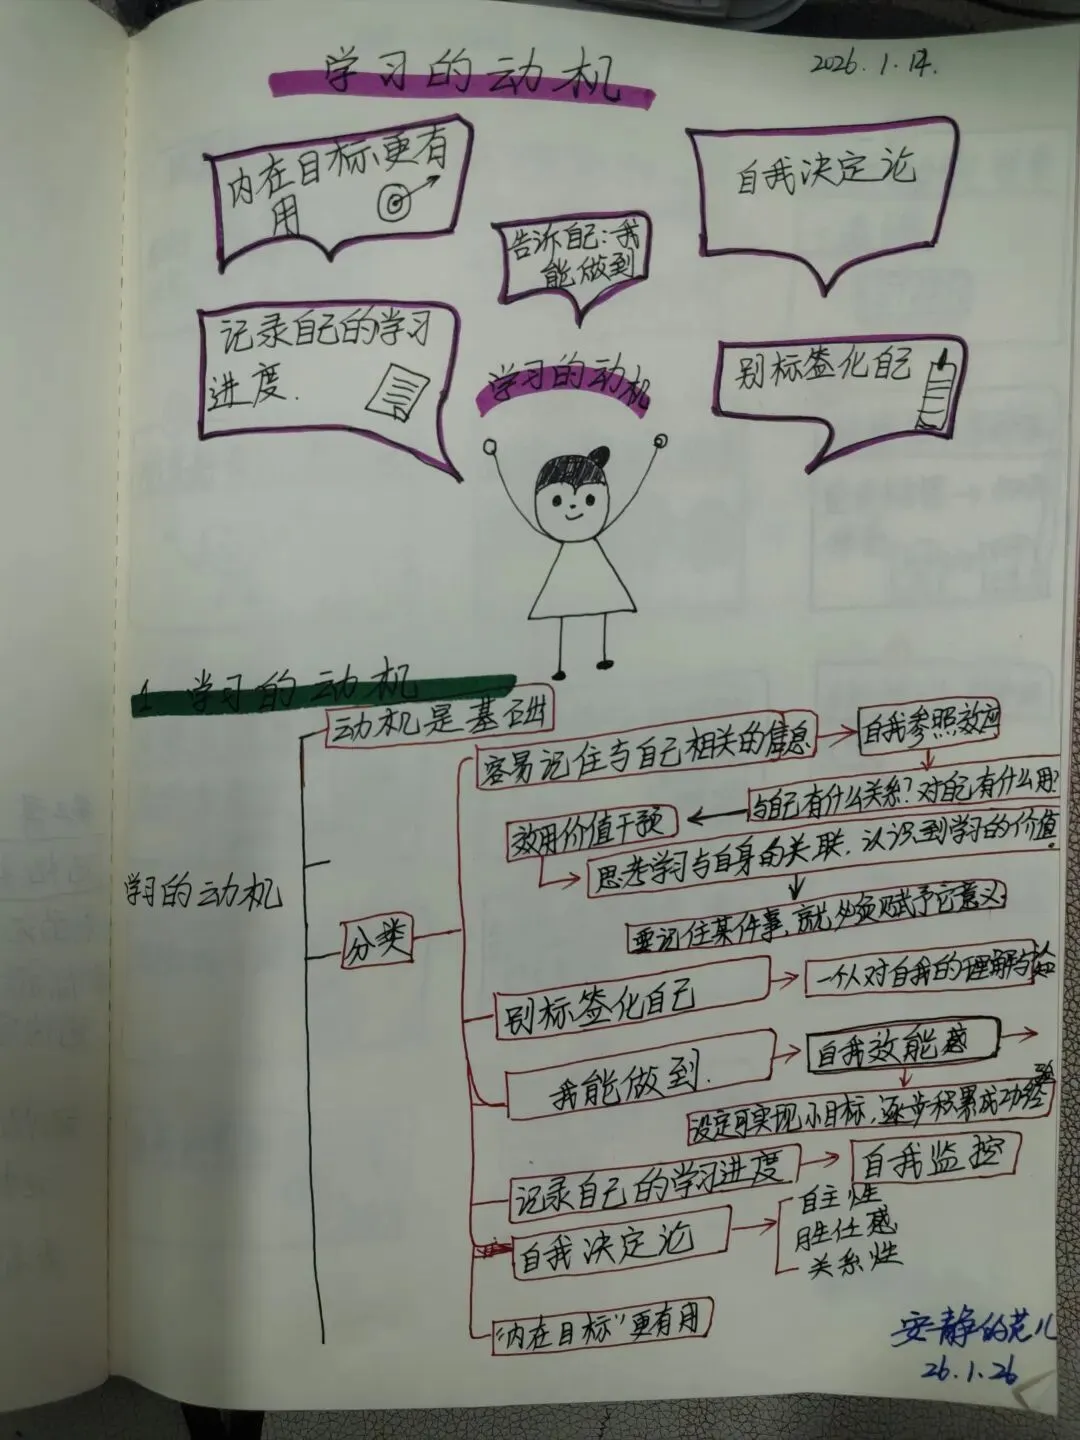 学习的动机
2026.1.14.
内在目标更有
用
自我决定论
告诉自己:我
能做到
记录自己的学习
进度.
别标签化自己
学习的动机
1 学习的动机
动机是基础
容易记住与自己相关的信息
自我参照效应
与自己有什么关系?对自己有什么用?
效用价值干预
思考学习与自身的关联.认识到学习的价值.
学习的动机
分类
要记住某件事,就必须赋予它意义.
别标签化自己
一个人对自我的理解与认知
我能做到.
自我效能感
设定可实现小目标,逐步积累成功经验
记录自己的学习进度
自我监控
自主性
胜任感
关系性
自我决定论
"内在目标"更有用
安静的范儿
26.1.26